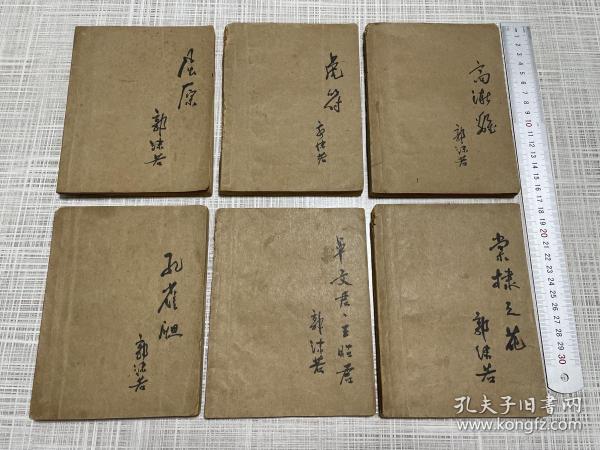 屈原
郭沫若
虎符
郭沫若
高渐離
郭沫若
孔雀胆
郭沫若
卓文君·王昭君
郭沫若
棠棣之花
郭沫若
1 2 3 4 5 6 7 8 9 10 11 12 13 14 15 16 17 18 19 20 21 22 23 24 25 26 27 28 29 30
孔夫子旧书网
www.kongfz.com